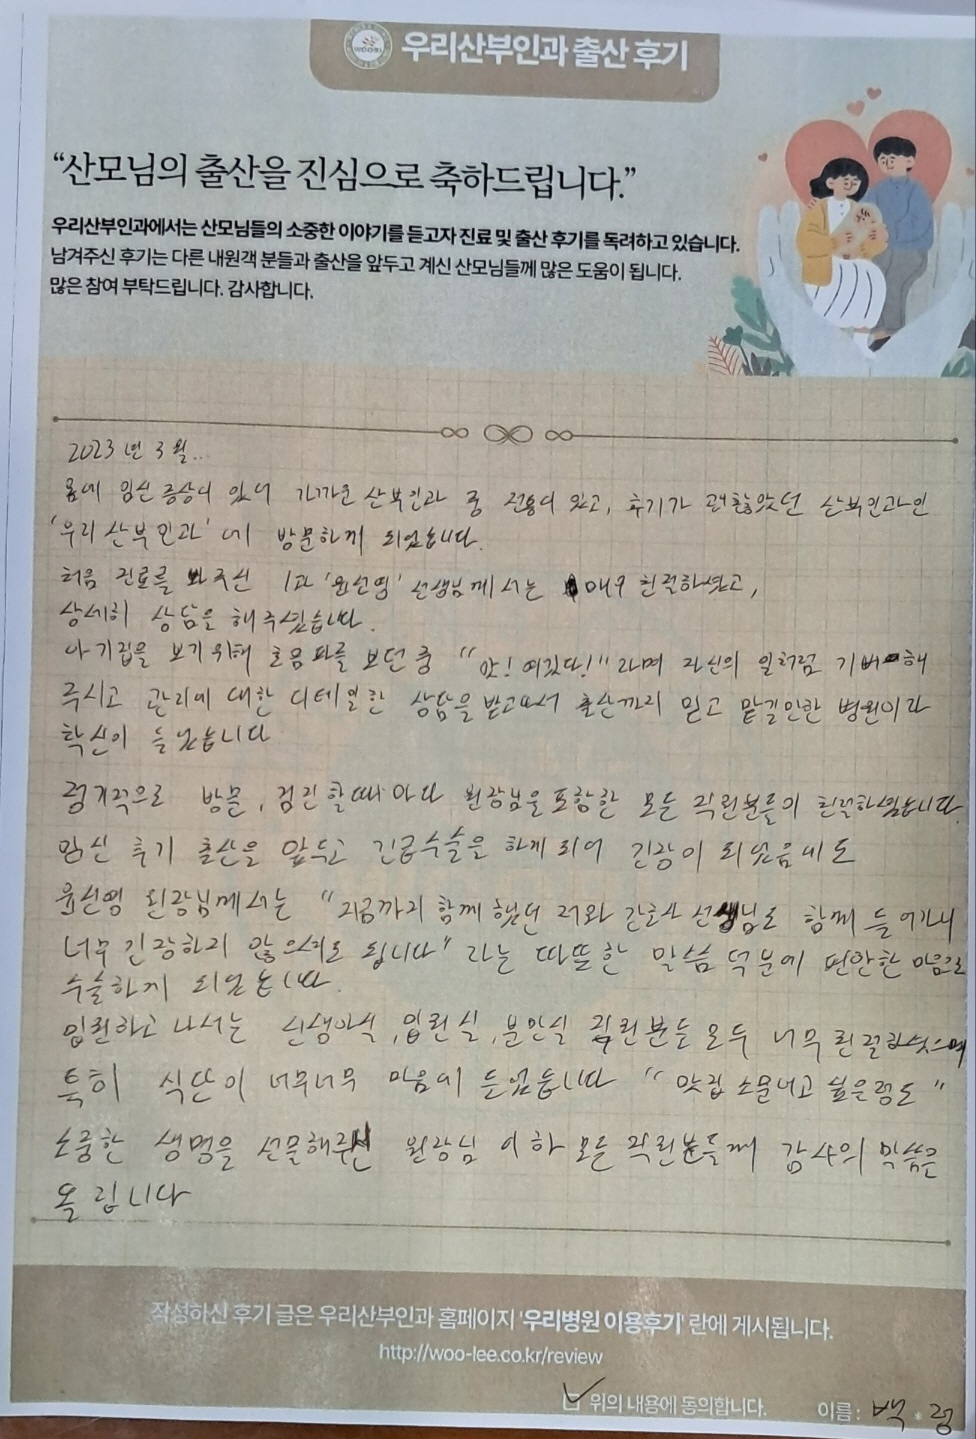 WOORI
우리산부인과 출산 후기
“산모님의 출산을 진심으로 축하드립니다.”
우리산부인과에서는 산모님들의 소중한 이야기를 듣고자 진료 및 출산 후기를 독려하고 있습니다.
남겨주신 후기는 다른 내원객 분들과 출산을 앞두고 계신 산모님들께 많은 도움이 됩니다.
많은 참여 부탁드립니다. 감사합니다.
2023년 3월...
몸에 임신 증상이 있어 가까운 산부인과 중 전통이 있고, 후기가 괜찮았던 산부인과인
'우리 산부인과' 에 방문하게 되었습니다.
처음 진료를 봐주신 1과 '윤선영' 선생님께서는 매우 친절하셨고,
상세히 상담을 해주셨습니다.
아기집을 보기위해 초음파를 보던 중 "앗! 여깄다!" 라며 자신의 일처럼 기뻐해
주시고 관리에 대한 디테일한 상담을 받고나서 출산까지 믿고 맡길만한 병원이라
확신이 들었습니다
정기적으로 방문, 검진할때마다 원장님을 포함한 모든 직원분들이 친절하였습니다.
임신 후기 출산을 앞두고 긴급수술을 하게 되어 긴장이 되었음에도
윤선영 원장님께서는 "지금까지 함께 했던 저와 간호사 선생님도 함께 들어가니
너무 긴장하지 않으셔도 됩니다" 라는 따뜻한 말씀 덕분에 편안한 마음으로
수술하게 되었습니다.
입원하고 나서는 신생아실, 입원실, 분만실 직원분들 모두 너무 친절하셨으며
특히 식단이 너무너무 마음에 들었습니다 "맛집 소문내고 싶은정도"
소중한 생명을 선물해주신 원장님 이하 모든 직원분들께 감사의 말씀을
올립니다
작성하신 후기 글은 우리산부인과 홈페이지 '우리병원 이용후기' 란에 게시됩니다.
http://woo-lee.co.kr/review
위의 내용에 동의합니다. 이름 : 백 * 정